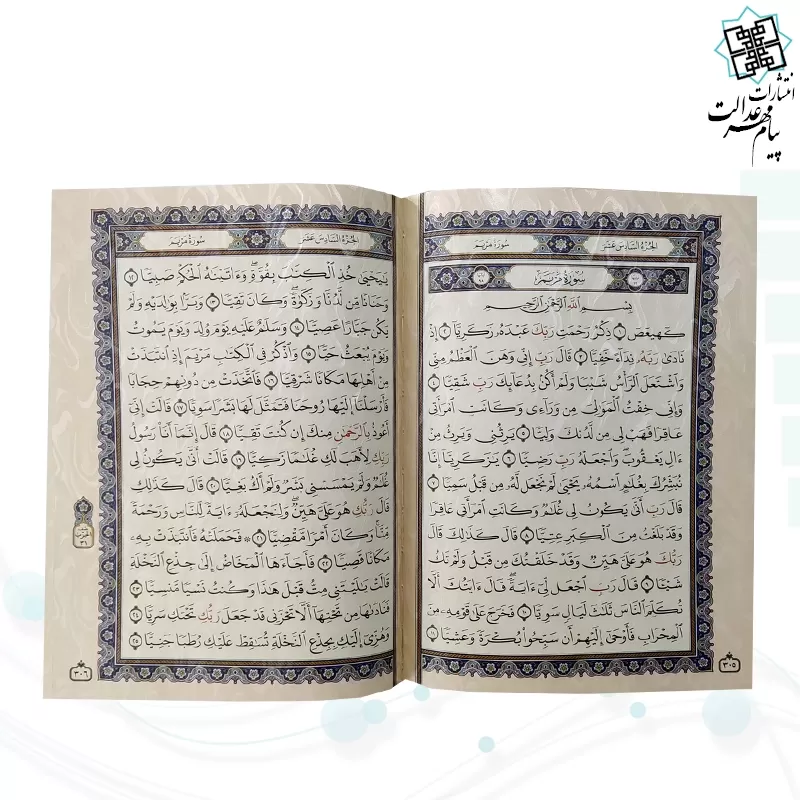 انتشارات
پیام مهر عدالت
الجُزْءُ السَّادِسَ عَشَرَ
سُورَةُ مَرْيَمَ
سُورَةُ مَرْيَمَ
بِسْمِ اللَّهِ الرَّحْمَٰنِ الرَّحِيمِ
كٓهيعٓصٓ ١ ذِكْرُ رَحْمَتِ رَبِّكَ عَبْدَهُۥ زَكَرِيَّآ ٢ إِذْ
نَادَىٰ رَبَّهُۥ نِدَآءً خَفِيًّا ٣ قَالَ رَبِّ إِنِّي وَهَنَ ٱلْعَظْمُ مِنِّي
وَٱشْتَعَلَ ٱلرَّأْسُ شَيْبًا وَلَمْ أَكُنۢ بِدُعَآئِكَ رَبِّ شَقِيًّا ٤
وَإِنِّي خِفْتُ ٱلْمَوَٰلِيَ مِن وَرَآءِي وَكَانَتِ ٱمْرَأَتِي
عَاقِرًا فَهَبْ لِي مِن لَّدُنكَ وَلِيًّا ٥ يَرِثُنِي وَيَرِثُ مِنْ
ءَالِ يَعْقُوبَ ۖ وَٱجْعَلْهُ رَبِّ رَضِيًّا ٦ يَٰزَكَرِيَّآ إِنَّا
نُبَشِّرُكَ بِغُلَٰمٍ ٱسْمُهُۥ يَحْيَىٰ لَمْ نَجْعَل لَّهُۥ مِن قَبْلُ سَمِيًّا ٧
قَالَ رَبِّ أَنَّىٰ يَكُونُ لِي غُلَٰمٌ وَكَانَتِ ٱمْرَأَتِي عَاقِرًا
وَقَدْ بَلَغْتُ مِنَ ٱلْكِبَرِ عِتِيًّا ٨ قَالَ كَذَٰلِكَ قَالَ
رَبُّكَ هُوَ عَلَيَّ هَيِّنٌ وَقَدْ خَلَقْتُكَ مِن قَبْلُ وَلَمْ تَكُ
شَيْـًٔا ٩ قَالَ رَبِّ ٱجْعَل لِّيٓ ءَايَةً ۚ قَالَ ءَايَتُكَ أَلَّا
تُكَلِّمَ ٱلنَّاسَ ثَلَٰثَ لَيَالٍ سَوِيًّا ١٠ فَخَرَجَ عَلَىٰ قَوْمِهِۦ مِنَ
ٱلْمِحْرَابِ فَأَوْحَىٰٓ إِلَيْهِمْ أَن سَبِّحُوا۟ بُكْرَةً وَعَشِيًّا ١١
٣٠٥
الجُزْءُ السَّادِسَ عَشَرَ
سُورَةُ مَرْيَمَ
يَٰيَحْيَىٰ خُذِ ٱلْكِتَٰبَ بِقُوَّةٍ ۖ وَءَاتَيْنَٰهُ ٱلْحُكْمَ صَبِيًّا ١٢
وَحَنَانًا مِّن لَّدُنَّا وَزَكَوٰةً ۖ وَكَانَ تَقِيًّا ١٣ وَبَرًّۢا بِوَٰلِدَيْهِ وَلَمْ
يَكُن جَبَّارًا عَصِيًّا ١٤ وَسَلَٰمٌ عَلَيْهِ يَوْمَ وُلِدَ وَيَوْمَ يَمُوتُ
وَيَوْمَ يُبْعَثُ حَيًّا ١٥ وَٱذْكُرْ فِي ٱلْكِتَٰبِ مَرْيَمَ إِذِ ٱنتَبَذَتْ
مِنْ أَهْلِهَا مَكَانًا شَرْقِيًّا ١٦ فَٱتَّخَذَتْ مِن دُونِهِمْ حِجَابًا
فَأَرْسَلْنَآ إِلَيْهَا رُوحَنَا فَتَمَثَّلَ لَهَا بَشَرًا سَوِيًّا ١٧ قَالَتْ إِنِّيٓ
أَعُوذُ بِٱلرَّحْمَٰنِ مِنكَ إِن كُنتَ تَقِيًّا ١٨ قَالَ إِنَّمَآ أَنَا۠ رَسُولُ
رَبِّكِ لِأَهَبَ لَكِ غُلَٰمًا زَكِيًّا ١٩ قَالَتْ أَنَّىٰ يَكُونُ لِي
غُلَٰمٌ وَلَمْ يَمْسَسْنِي بَشَرٌ وَلَمْ أَكُ بَغِيًّا ٢٠ قَالَ كَذَٰلِكِ
قَالَ رَبُّكِ هُوَ عَلَيَّ هَيِّنٌ ۖ وَلِنَجْعَلَهُۥٓ ءَايَةً لِّلنَّاسِ وَرَحْمَةً
مِّنَّا ۚ وَكَانَ أَمْرًا مَّقْضِيًّا ٢١ فَحَمَلَتْهُ فَٱنتَبَذَتْ بِهِۦ
مَكَانًا قَصِيًّا ٢٢ فَأَجَآءَهَا ٱلْمَخَاضُ إِلَىٰ جِذْعِ ٱلنَّخْلَةِ
قَالَتْ يَٰلَيْتَنِي مِتُّ قَبْلَ هَٰذَا وَكُنتُ نَسْيًا مَّنسِيًّا ٢٣
فَنَادَىٰهَا مِن تَحْتِهَآ أَلَّا تَحْزَنِي قَدْ جَعَلَ رَبُّكِ تَحْتَكِ سَرِيًّا ٢٤
وَهُزِّيٓ إِلَيْكِ بِجِذْعِ ٱلنَّخْلَةِ تُسَٰقِطْ عَلَيْكِ رُطَبًا جَنِيًّا ٢٥
٣٠٦